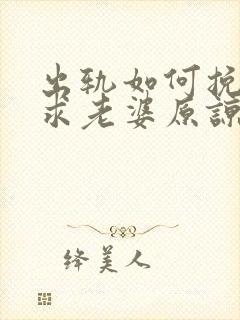 出轨如何挽
求老婆原谅
绛美人